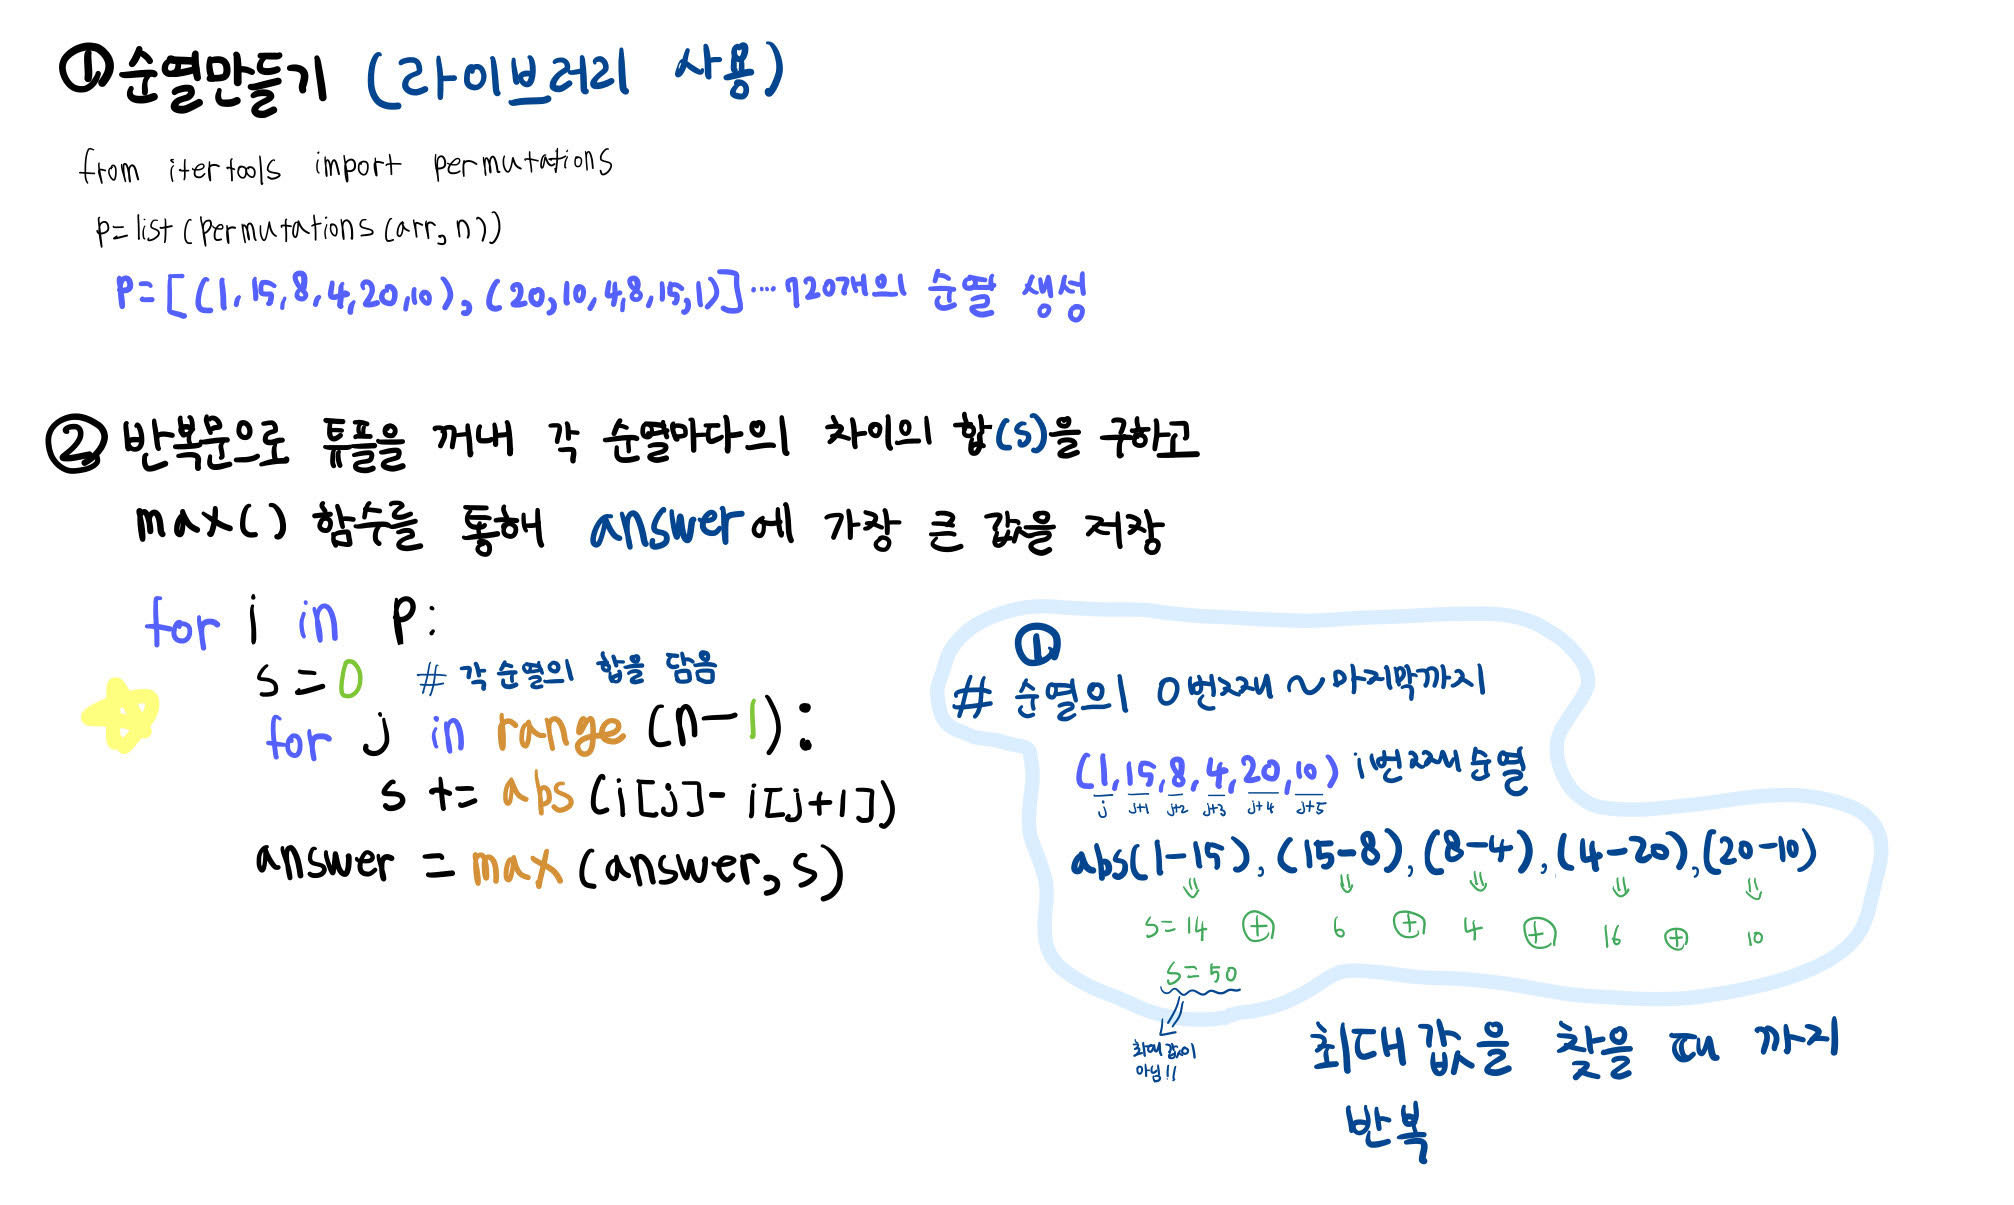 ① 순열만들기 (라이브러리 사용)
from itertools import permutations
p=list(permutations(arr,n))
P=[(1,15,8,4,20,10),(20,10,4,8,15,1)]…720개의 순열 생성
② 반복문으로 튜플을 꺼내 각 순열마다의 차이의 합(s)을 구하고
max() 함수를 통해 answer에 가장 큰 값을 저장
for i in p:
s=0 # 각 순열의 합을 담음
for j in range (n-1):
s += abs (i[j]- i[j+1])
answer = max (answer,s)
①
# 순열의 0번째 ~ 마지막까지
(1,15,8,4,20,10) i번째 순열
j j+1 j+2 j+3 j+4 j+5
abs(1-15), (15-8), (8-4), (4-20), (20-10)
⇓ ⇓ ⇓ ⇓ ⇓
s=14 ⊕ 6 ⊕ 4 ⊕ 16 ⊕ 10
s=50
최대값이
아님!!
최대값을 찾을 때 까지
반복